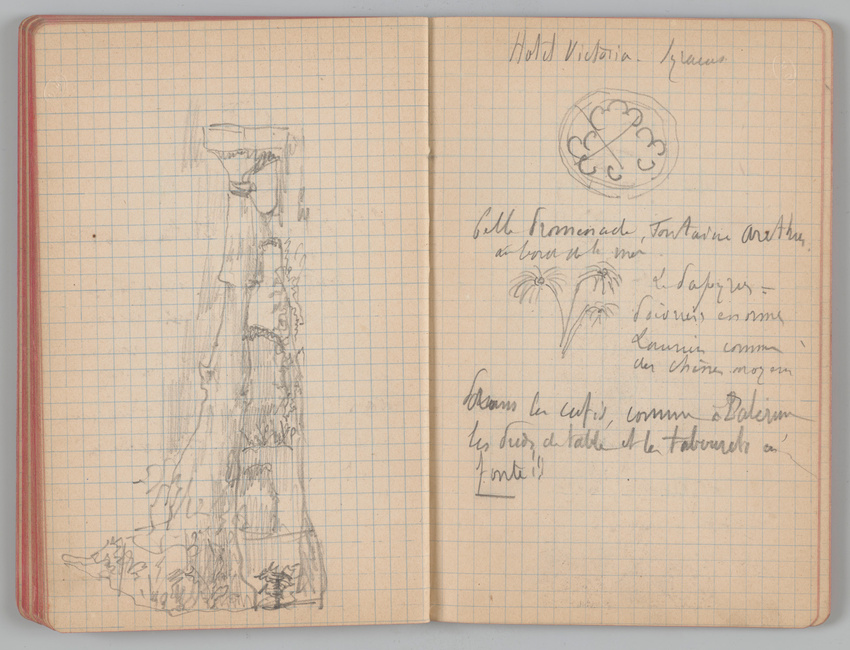 Hotel Victoria - Syracuse
Belle Promenade, Fontaine Arethuse
au bord de la mer
Le Papyrus =
Poivriers enormes
Lauriers comme
des chênes moyens
Dans les cafés, comme à Palerme
les pieds de table et les tabourets en
fonte!!